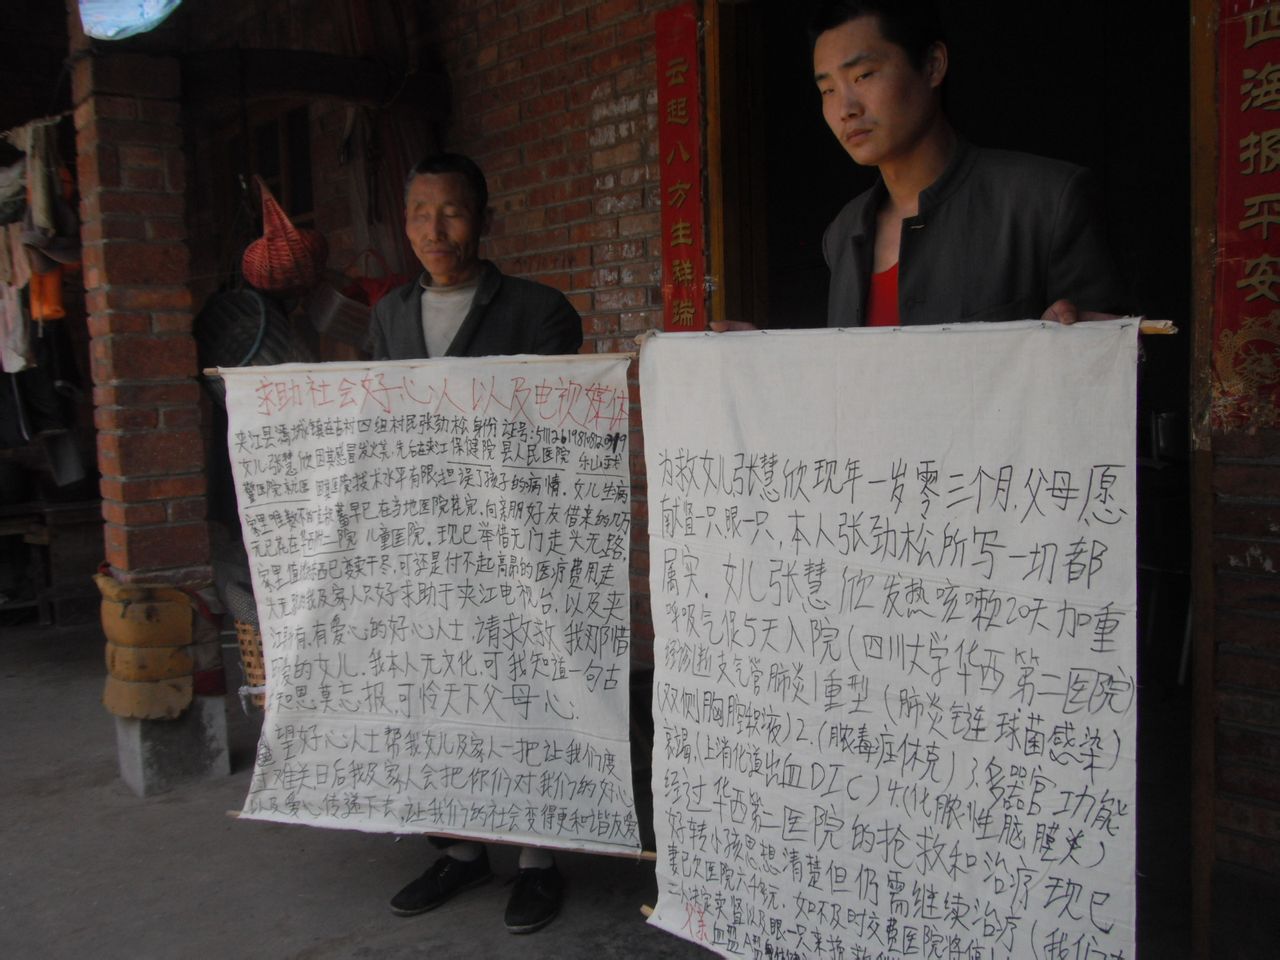 求助社会好心人以及电视媒体
夹江县漹城镇在古村四组村民张劲松身份证号:
女儿张慧欣因其感冒发火羔,先后在夹江保健院县人民医院 乐山武
警医院就医因其医院技术水平有限担误了孩子的病情,女儿生病
家里唯数不多的积蓄早已在当地医院花完,向亲朋好友借来的几万
元已花在华西二院儿童医院,现已举借无门走头无路,
家里值钱的东西已变卖干尽,可还是付不起高昂的医疗费用走
头无路的我及家人只好求助于夹江电视台,以及夹
江所有,有爱心的好心人士,请救救,我那可惜
爱的女儿.我本人无文化,可我知道一句古
知恩莫忘报,可怜天下父母心.
望好心人士帮我女儿及家人一把让我们度
过难关日后我及家人会把你们对我们的好心
以及爱心传递下去,让我们的社会变得更和谐友爱
为救女儿张慧欣现年一岁零三个月,父母愿
献肾一只,眼一只,本人张劲松所写一切都
属实.女儿张慧欣发热咳嗽20天加重
呼吸气促5天入院(四川大学华西第二医院)
经诊断支气管肺炎1重型(肺炎链球菌感染)
(双侧胸腔积液)2.(脓毒症休克)3.多器官功能
衰竭(上消化道出血DIC)4.(化脓性脑膜炎)
经过华西第二医院的抢救和治疗现已
好转小孩思想清楚但仍需继续治疗(我们夫
妻已欠医院六千多元,如不及时交费医院将停
二人决定卖肾以及眼一只来拯救
父亲血型
云起八方生祥瑞
四海报平安